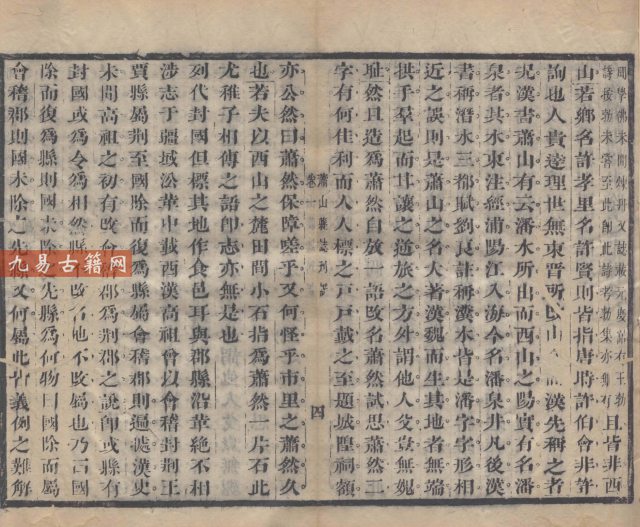 且皆非西
山若鄉名許孝里名許賢則皆指唐時許伯會非許
詢也人貴達理世無東晉所
漢先稱之者
況漢書蕭山有云潘水所出而西山之陽實有名潘
泉者其水東注經浦陽江入海今名潘泉井凡後漢
書稱潛水三都賦劉良註稱漢水皆是潘字字形相
近之誤則是蕭山之名大著漢魏而生其地者無端
拱手羣起而甘讓之道旅之方外謂他人父豈無覥
耻然且造爲蕭然自放一語改名蕭然試思蕭然二
字有何佳利而人人標之戶戶戴之至題城隍祠額
蕭山縣誌刊誤
卷一
四
亦公然曰蕭然保障嗟乎又何怪乎市里之蕭然久
也若夫以西山之麓田間小石指爲蕭然一片石此
尤稚子相傳之語卽志亦無是也
列代封國但標其地作食邑耳與郡縣沿革絕不相
涉志于疆域沿革中載西漢高祖會以會稽封荊王
賈縣屬荊至國除而復爲縣屬會稽郡則遍讀漢史
未聞高祖之初有改會稽郡爲荊郡之說卽或縣有
封國或爲令爲相然縣
改名地不改屬也乃言國
除而復爲縣則
先縣爲何物曰國除而屬
會稽郡則國未除之先
又何屬此皆義例之難解
九易古籍网